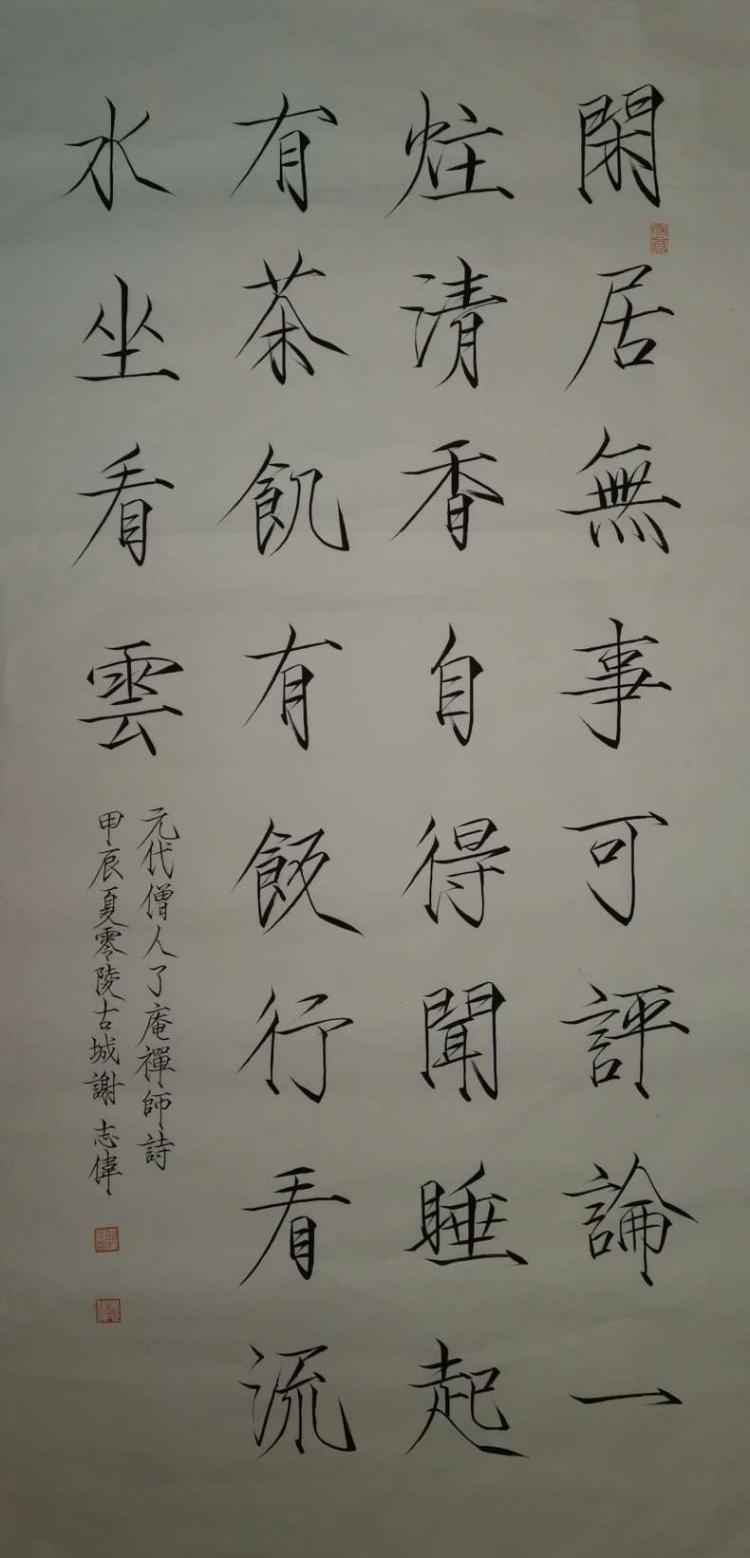 閑居無事可評論一
炷清香自得聞睡起
有茶飢有飯行看流
水坐看雲
元代僧人了庵禪師詩
甲辰夏零陵古城謝志偉